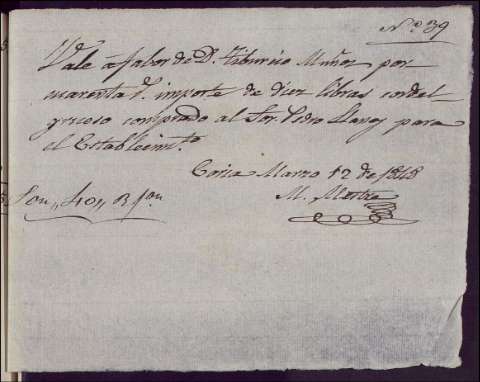 Nº 39
Vale á fabor de Dn Tiburcio Muñoz por
cuarenta rs importe de diez libras cordel
grueso comprado al Sor. Pedro Llanos para
el Establecimto
Coria Marzo 12 de 1848
Son,, 40,, R von
M. Mestre